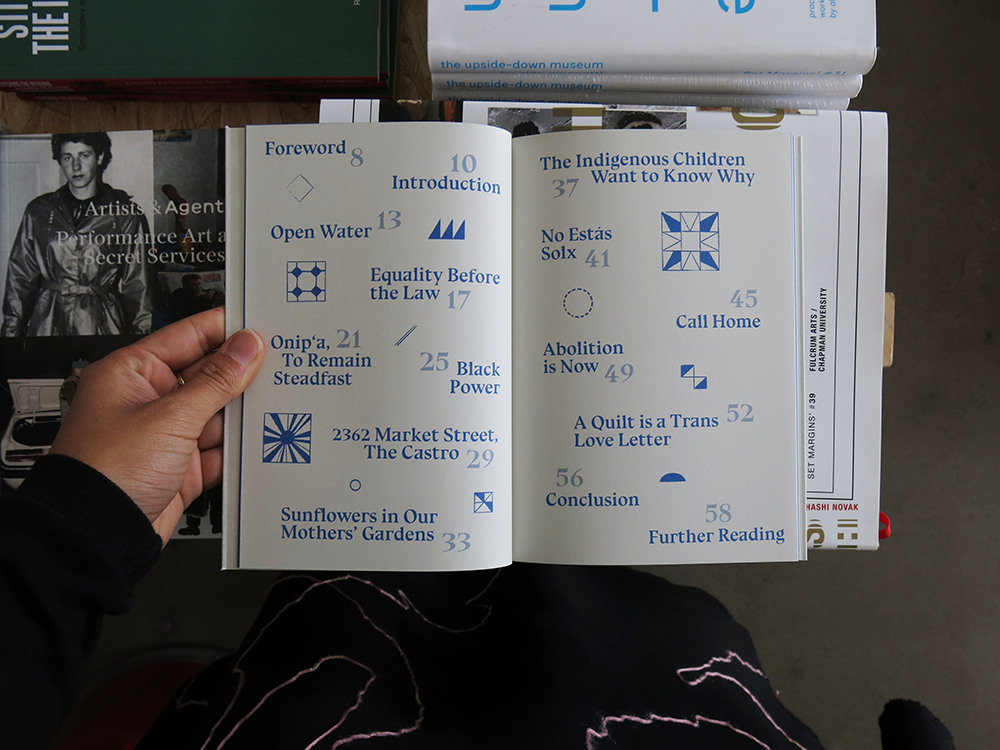 the upside-down museum
the upside-down museum
Set Margins' #31
Artists & Agent
Performance Art a
Secret Services
Foreword 8
10
Introduction
Open Water 13
Equality Before
the Law 17
Onip‘a, 21
To Remain
Steadfast
25 Black
Power
2362 Market Street,
The Castro 29
Sunflowers in Our
Mothers’ Gardens 33
The Indigenous Children
37 Want to Know Why
No Estás
Solx 41
45
Call Home
Abolition
is Now 49
A Quilt is a Trans 52
Love Letter
56
Conclusion
58
Further Reading
FULCRUM ARTS /
CHAPMAN UNIVERSITY
SET MARGINS' #39
HASHI NOVAK